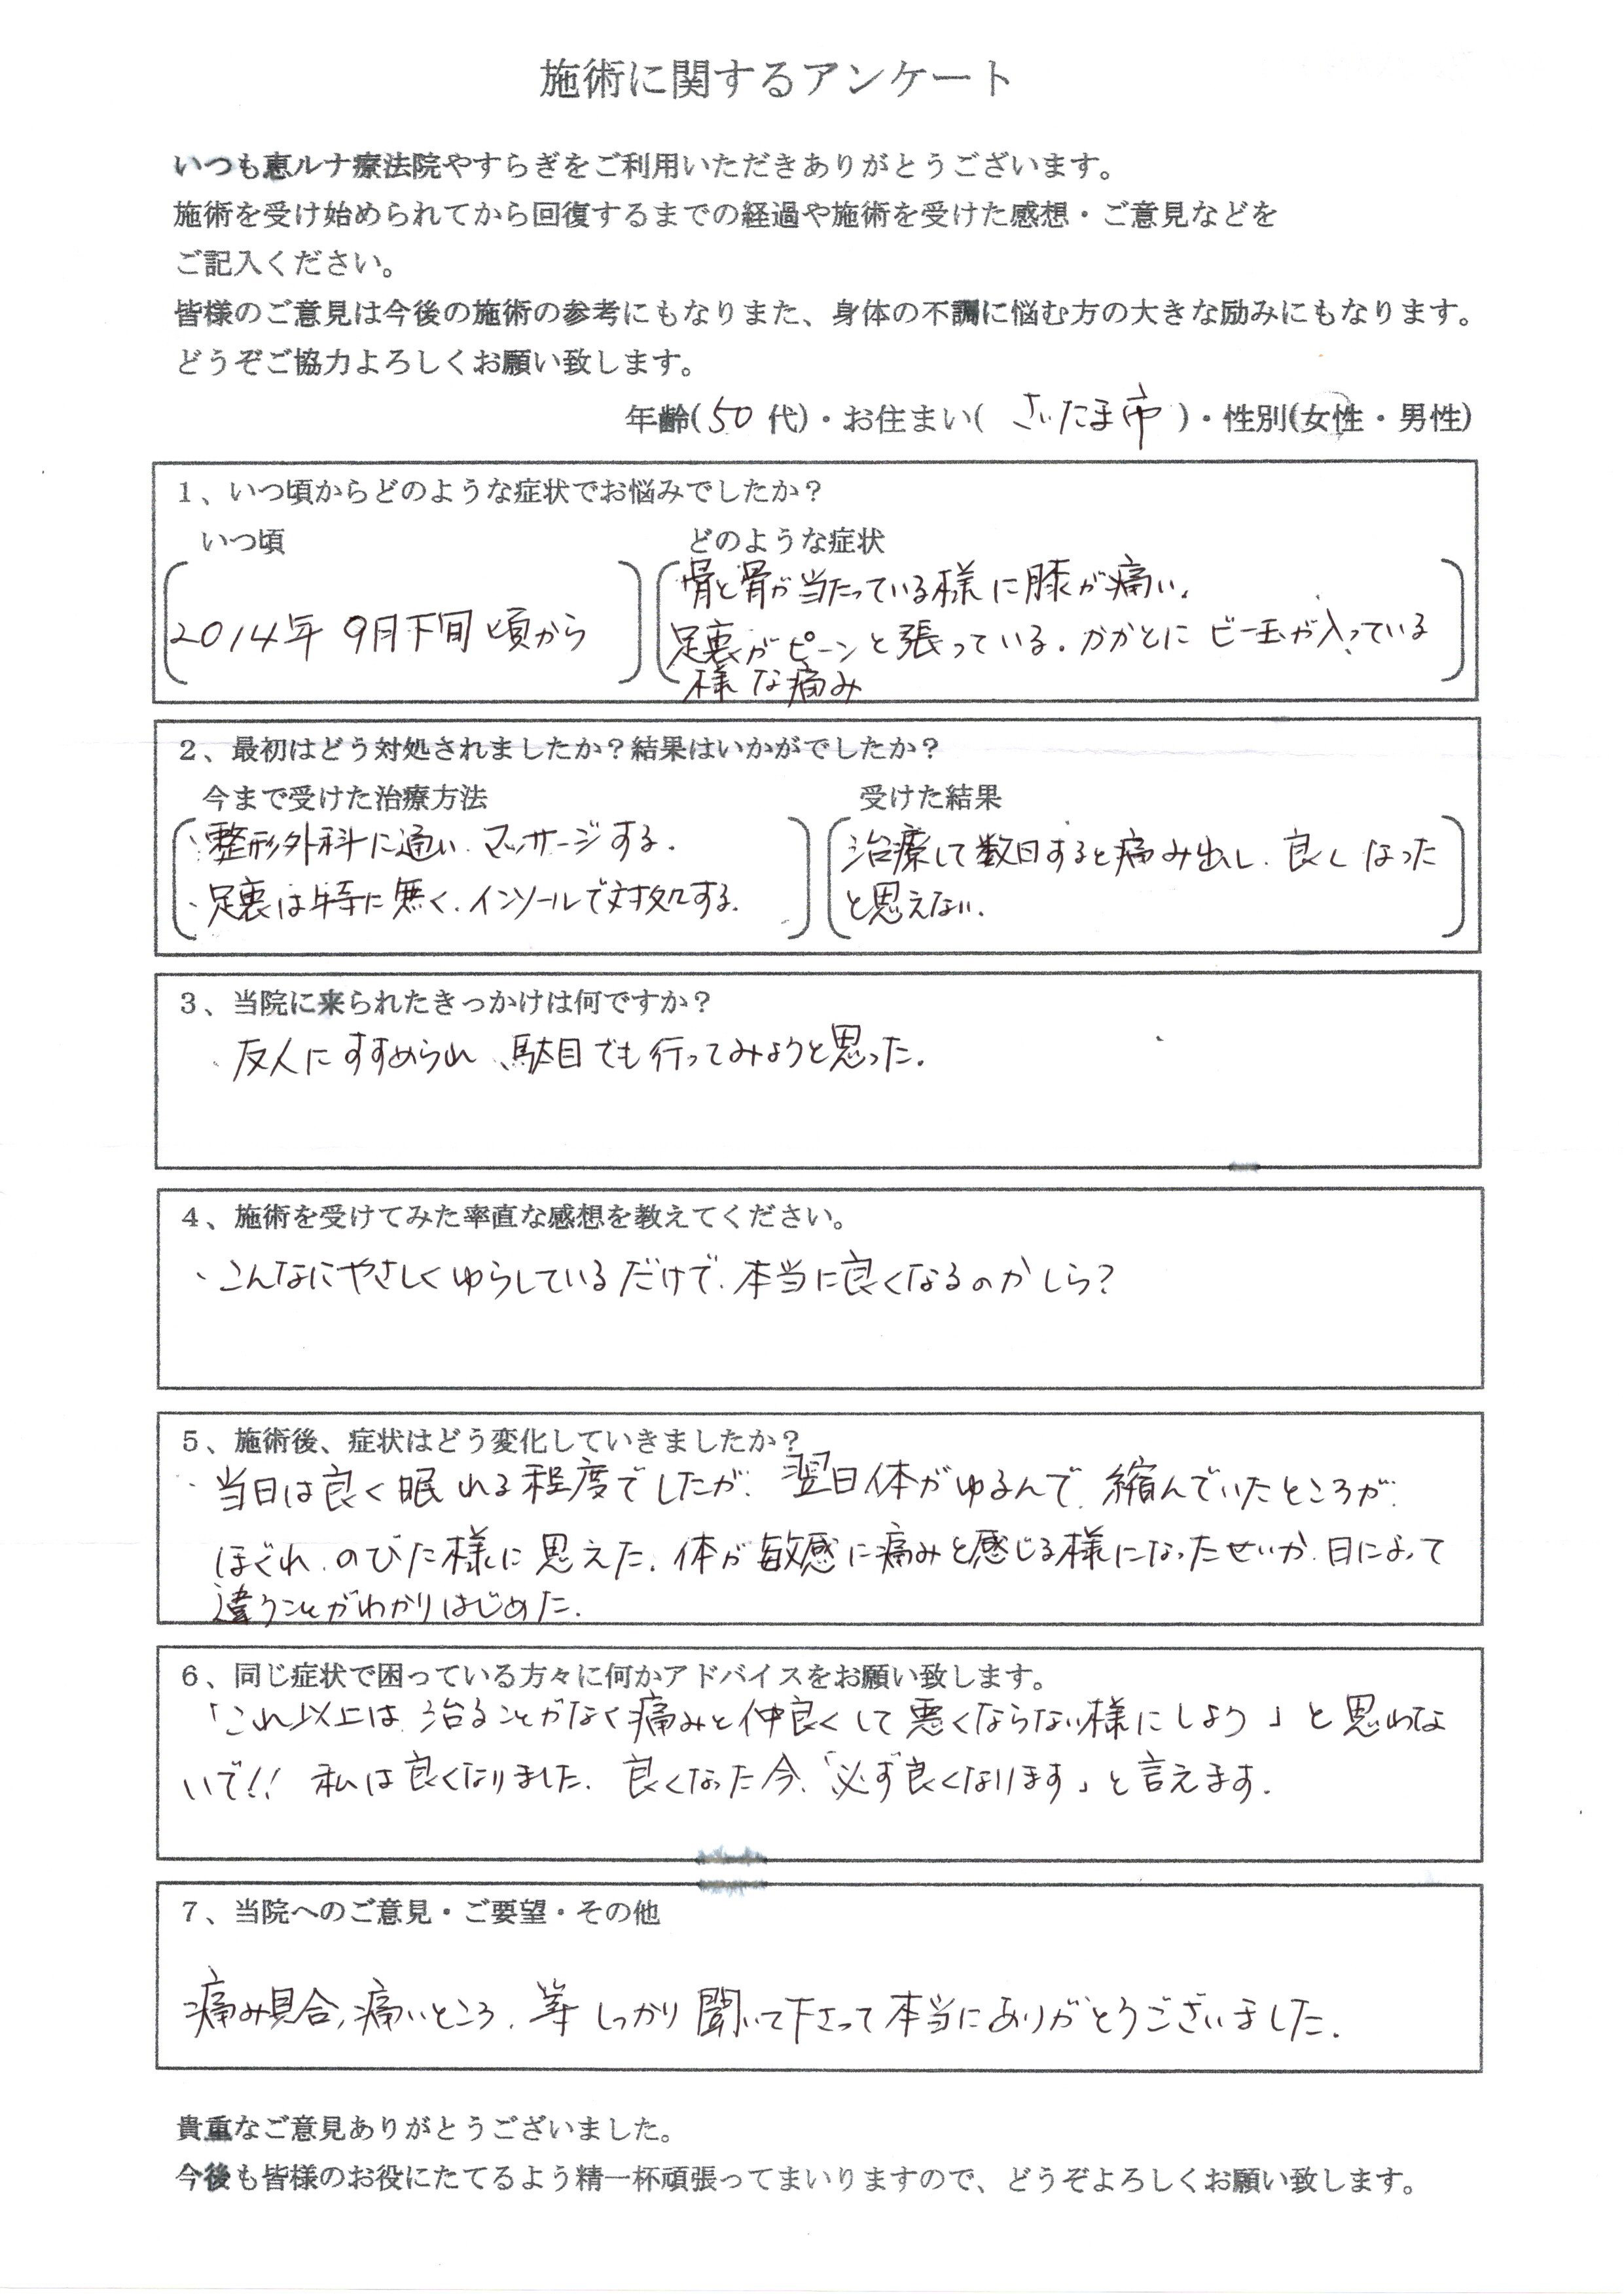 施術に関するアンケート
いつも恵ルナ療法院やすらぎをご利用いただきありがとうございます。
施術を受け始められてから回復するまでの経過や施術を受けた感想・ご意見などを
ご記入ください。
皆様のご意見は今後の施術の参考にもなりまた、身体の不調に悩む方の大きな励みにもなります。
どうぞご協力よろしくお願い致します。
年齢(50 代)・お住まい( さいたま市 )・性別(女性・男性)
1、いつ頃からどのような症状でお悩みでしたか？
いつ頃 どのような症状
骨と骨が当たっている様に膝が痛い。
2014年 9月下旬頃から
足裏がピーンと張っている。かかとにビー玉が入っている
様な痛み
2、最初はどう対処されましたか？結果はいかがでしたか？
今まで受けた治療方法 受けた結果
・整形外科に通い、マッサージする。
・足裏は特に無く、インソールで対処する。
治療して数日すると痛み出し、良くなった
と思えない。
3、当院に来られたきっかけは何ですか？
・友人にすすめられ、駄目でも行ってみようと思った。
4、施術を受けてみた率直な感想を教えてください。
・こんなにやさしくゆらしているだけで、本当に良くなるのかしら？
5、施術後、症状はどう変化していきましたか？
・当日は良く眠れる程度でしたが、翌日体がゆるんで、縮んでいたところが、
ほぐれ、のびた様に思えた。体が敏感に痛みと感じる様になったせいか、日によって
違うことがわかりはじめた。
6、同じ症状で困っている方々に何かアドバイスをお願い致します。
「これ以上は、治ることがなく痛みと仲良くして悪くならない様にしよう」と思わな
いで!! 私は良くなりました。良くなった今、「必ず良くなります」と言えます。
7、当院へのご意見・ご要望・その他
痛み具合、痛いところ、等しっかり聞いて下さって本当にありがとうございました。
貴重なご意見ありがとうございました。
今後も皆様のお役にたてるよう精一杯頑張ってまいりますので、どうぞよろしくお願い致します。